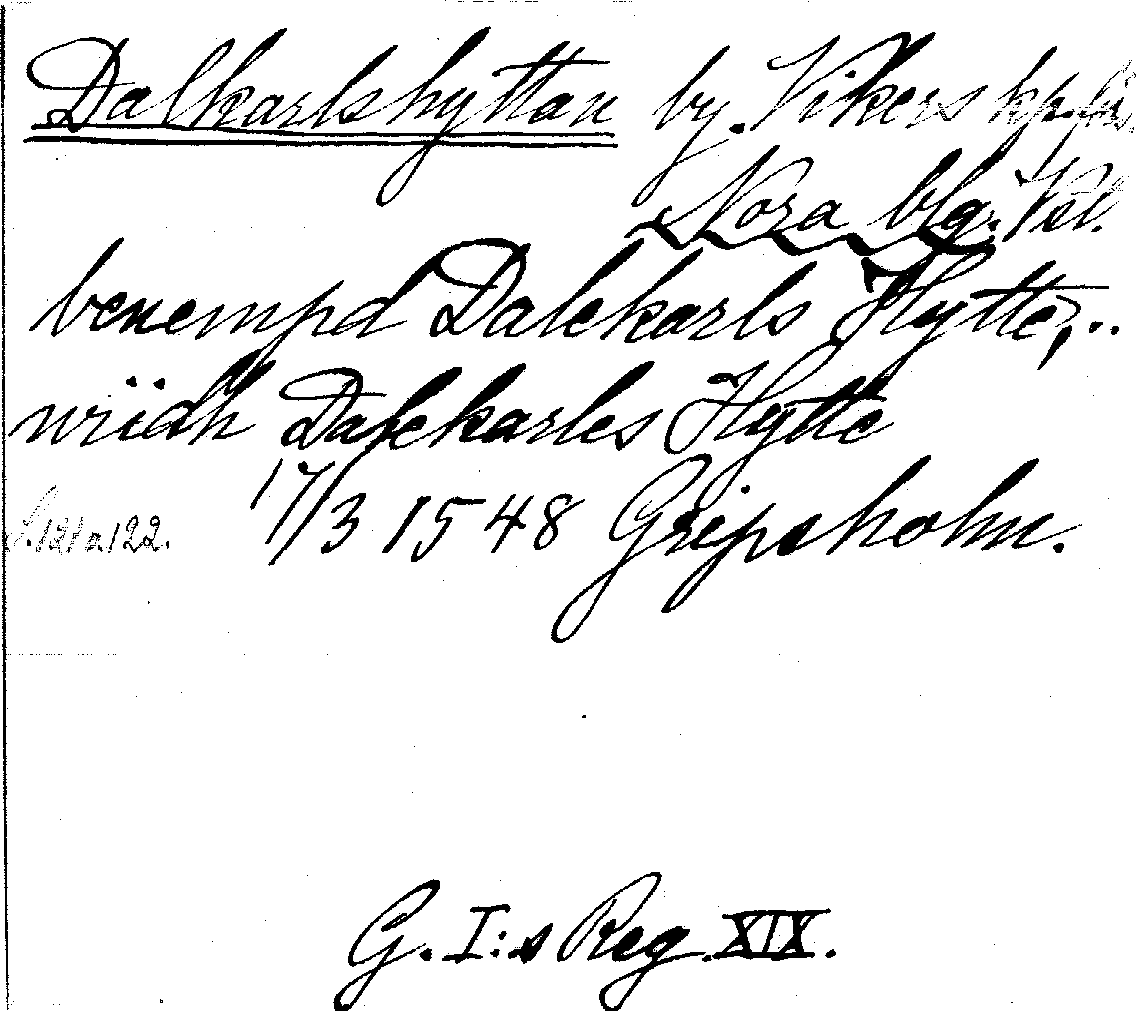 Dalkarlshyttan by. Vikers kp.
Nora blg. Vstl.
benempd Dalekarls Hytte,..
wiidh Dalekarles Hytte
S. 121 o. 122. 17/3 1548 Gripsholm.
G. I:s Reg. XIX.